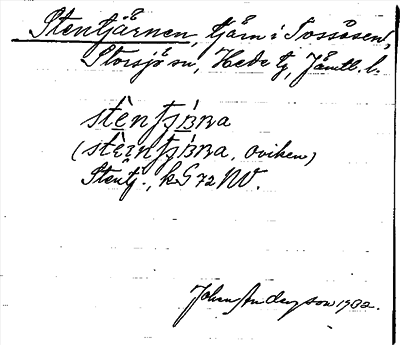 Stentjärnen, tjärn i Tossåsen,
Storsjö sn, Hede tg, Jämtl. l.
(stèintʂɪ́ɴɴa, Oviken)
Stentj., kG 72 NV.
Johan Anderson 1902.